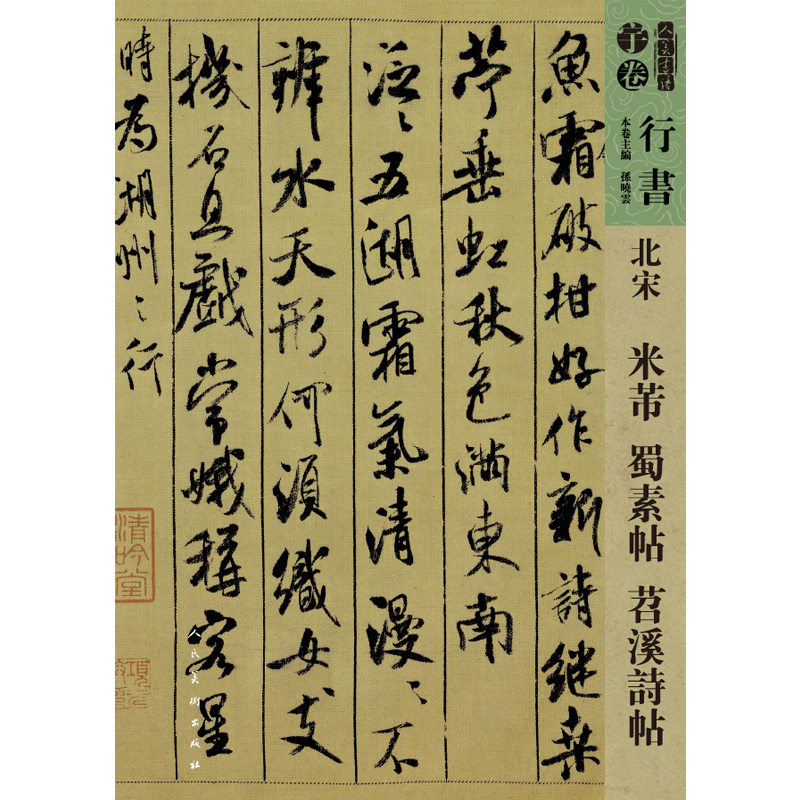 人美書譜
宇卷
行書
本卷主編 孫曉雲
北宋 米芾 蜀素帖 苕溪詩帖
魚霜破柑好作新詩繼桒
苧垂虹秋色滿東南
泛〻五湖霜氣清漫〻不
辨水天形何須織女支
機石且戲常娥稱客星
時為湖州之行
清吟堂
人民美術出版社